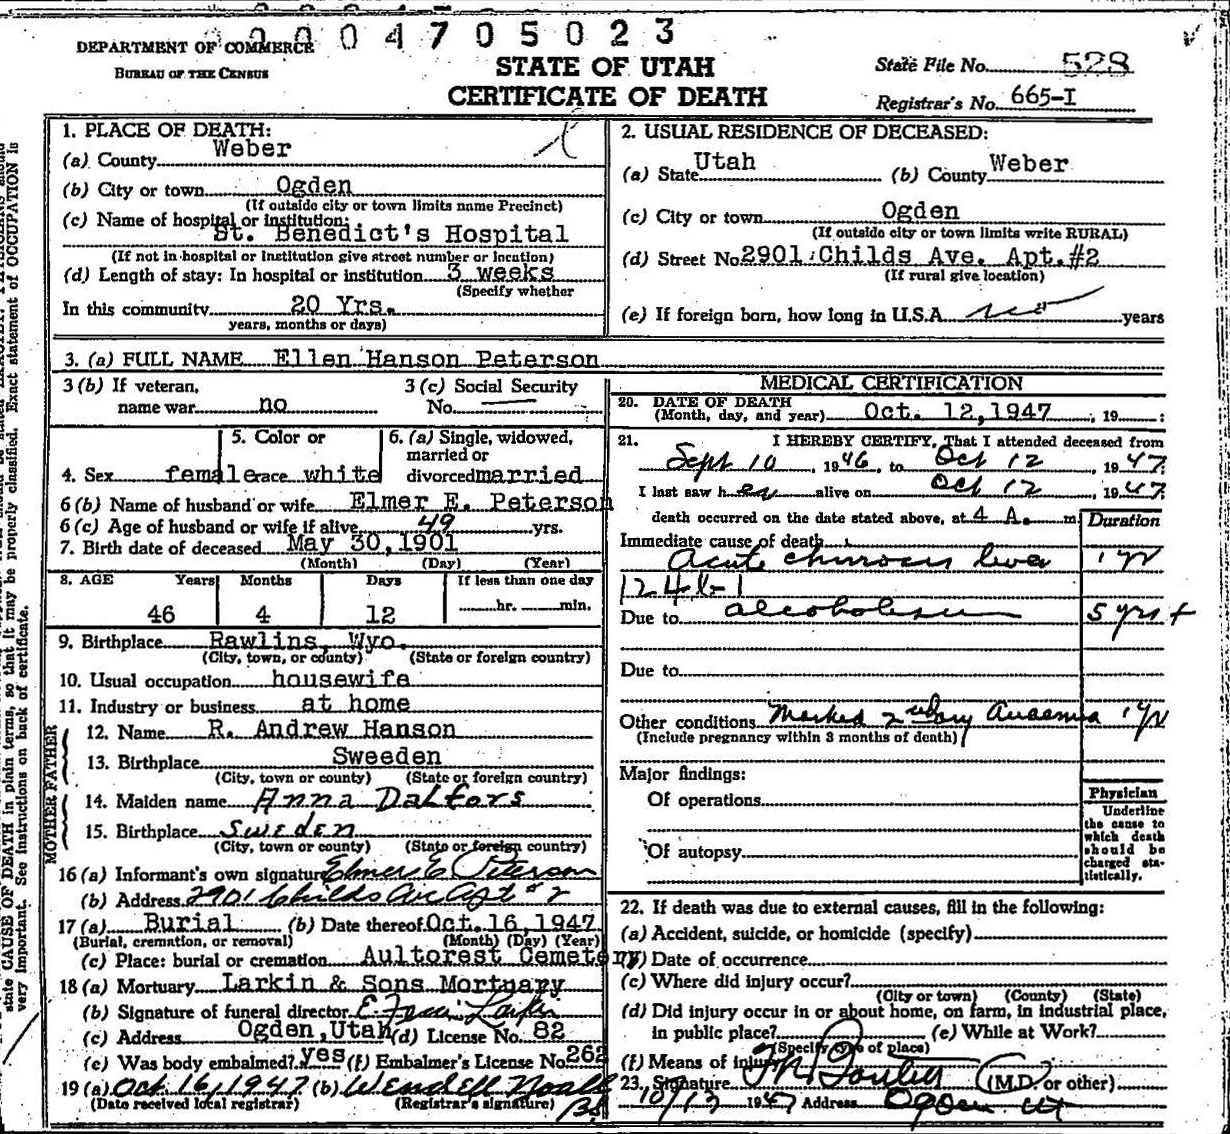 0004705023
DEPARTMENT OF COMMERCE
BUREAU OF THE CENSUS
STATE OF UTAH
CERTIFICATE OF DEATH
State File No. 528
Registrar's No. 665-I
1. PLACE OF DEATH:
(a) County Weber
(b) City or town Ogden
(If outside city or town limits name Precinct)
(c) Name of hospital or institution:
St. Benedict's Hospital
(If not in hospital or institution give street number or location)
(d) Length of stay: In hospital or institution 3 weeks
(Specify whether
In this community 20 Yrs.
years, months or days)
2. USUAL RESIDENCE OF DECEASED:
(a) State Utah (b) County Weber
(c) City or town Ogden
(If outside city or town limits write RURAL)
(d) Street No. 2901 Childs Ave. Apt.#2
(If rural give location)
(e) If foreign born, how long in U.S.A. years
3. (a) FULL NAME Ellen Hanson Peterson
3 (b) If veteran, name war no
3 (c) Social Security No.
4. Sex female
5. Color or race white
6. (a) Single, widowed, married or divorced married
6 (b) Name of husband or wife Elmer E. Peterson
6 (c) Age of husband or wife if alive 49 yrs.
7. Birth date of deceased May 30, 1901
(Month) (Day) (Year)
8. AGE Years Months Days If less than one day
46 4 12 hr. min.
9. Birthplace Rawlins, Wyo.
(City, town, or county) (State or foreign country)
10. Usual occupation housewife
11. Industry or business at home
FATHER
12. Name R. Andrew Hanson
13. Birthplace Sweeden
(City, town or county) (State or foreign country)
MOTHER
14. Maiden name Anna Dalfors
15. Birthplace Sweden
(City, town or county) (State or foreign country)
16 (a) Informant's own signature Elmer E Peterson
(b) Address 2901 Childs Av Apt #2
17 (a) Burial (b) Date thereof Oct. 16, 1947
(Burial, cremation, or removal) (Month) (Day) (Year)
(c) Place: burial or cremation Aultorest Cemetery
18 (a) Mortuary Larkin & Sons Mortuary
(b) Signature of funeral director Larkin
(c) Address Ogden, Utah (d) License No. 82
(e) Was body embalmed? yes (f) Embalmer's License No. 262
19 (a) Oct 16, 1947 (b) Wendell Noall
(Date received local registrar) (Registrar's signature)
MEDICAL CERTIFICATION
20. DATE OF DEATH
(Month, day, and year) Oct. 12, 1947, 19
21. I HEREBY CERTIFY, That I attended deceased from
Sept 10, 1946, to Oct 12 1947
I last saw her alive on Oct 12 1947
death occurred on the date stated above, at 4 A. m Duration
Immediate cause of death
Acute cirrhosis liver 1 yr
124b-1
Due to alcoholism 5 yrs +
Due to
Other conditions Marked 2ndary Anaemia 1 yr
(Include pregnancy within 3 months of death)
Major findings:
Of operations
Of autopsy
Physician
Underline
the cause to
which death
should be
charged sta-
tistically.
22. If death was due to external causes, fill in the following:
(a) Accident, suicide, or homicide (specify)
(b) Date of occurrence
(c) Where did injury occur?
(City or town) (County) (State)
(d) Did injury occur in or about home, on farm, in industrial place,
in public place? (e) While at Work?
(Specify type of place)
(f) Means of injury
23. Signature (M.D. or other)
10/13 1947 Address Ogden Ut
state CAUSE OF DEATH in plain terms, so that it may be properly classified. Exact statement of OCCUPATION is
very important. See instructions on back of certificate.